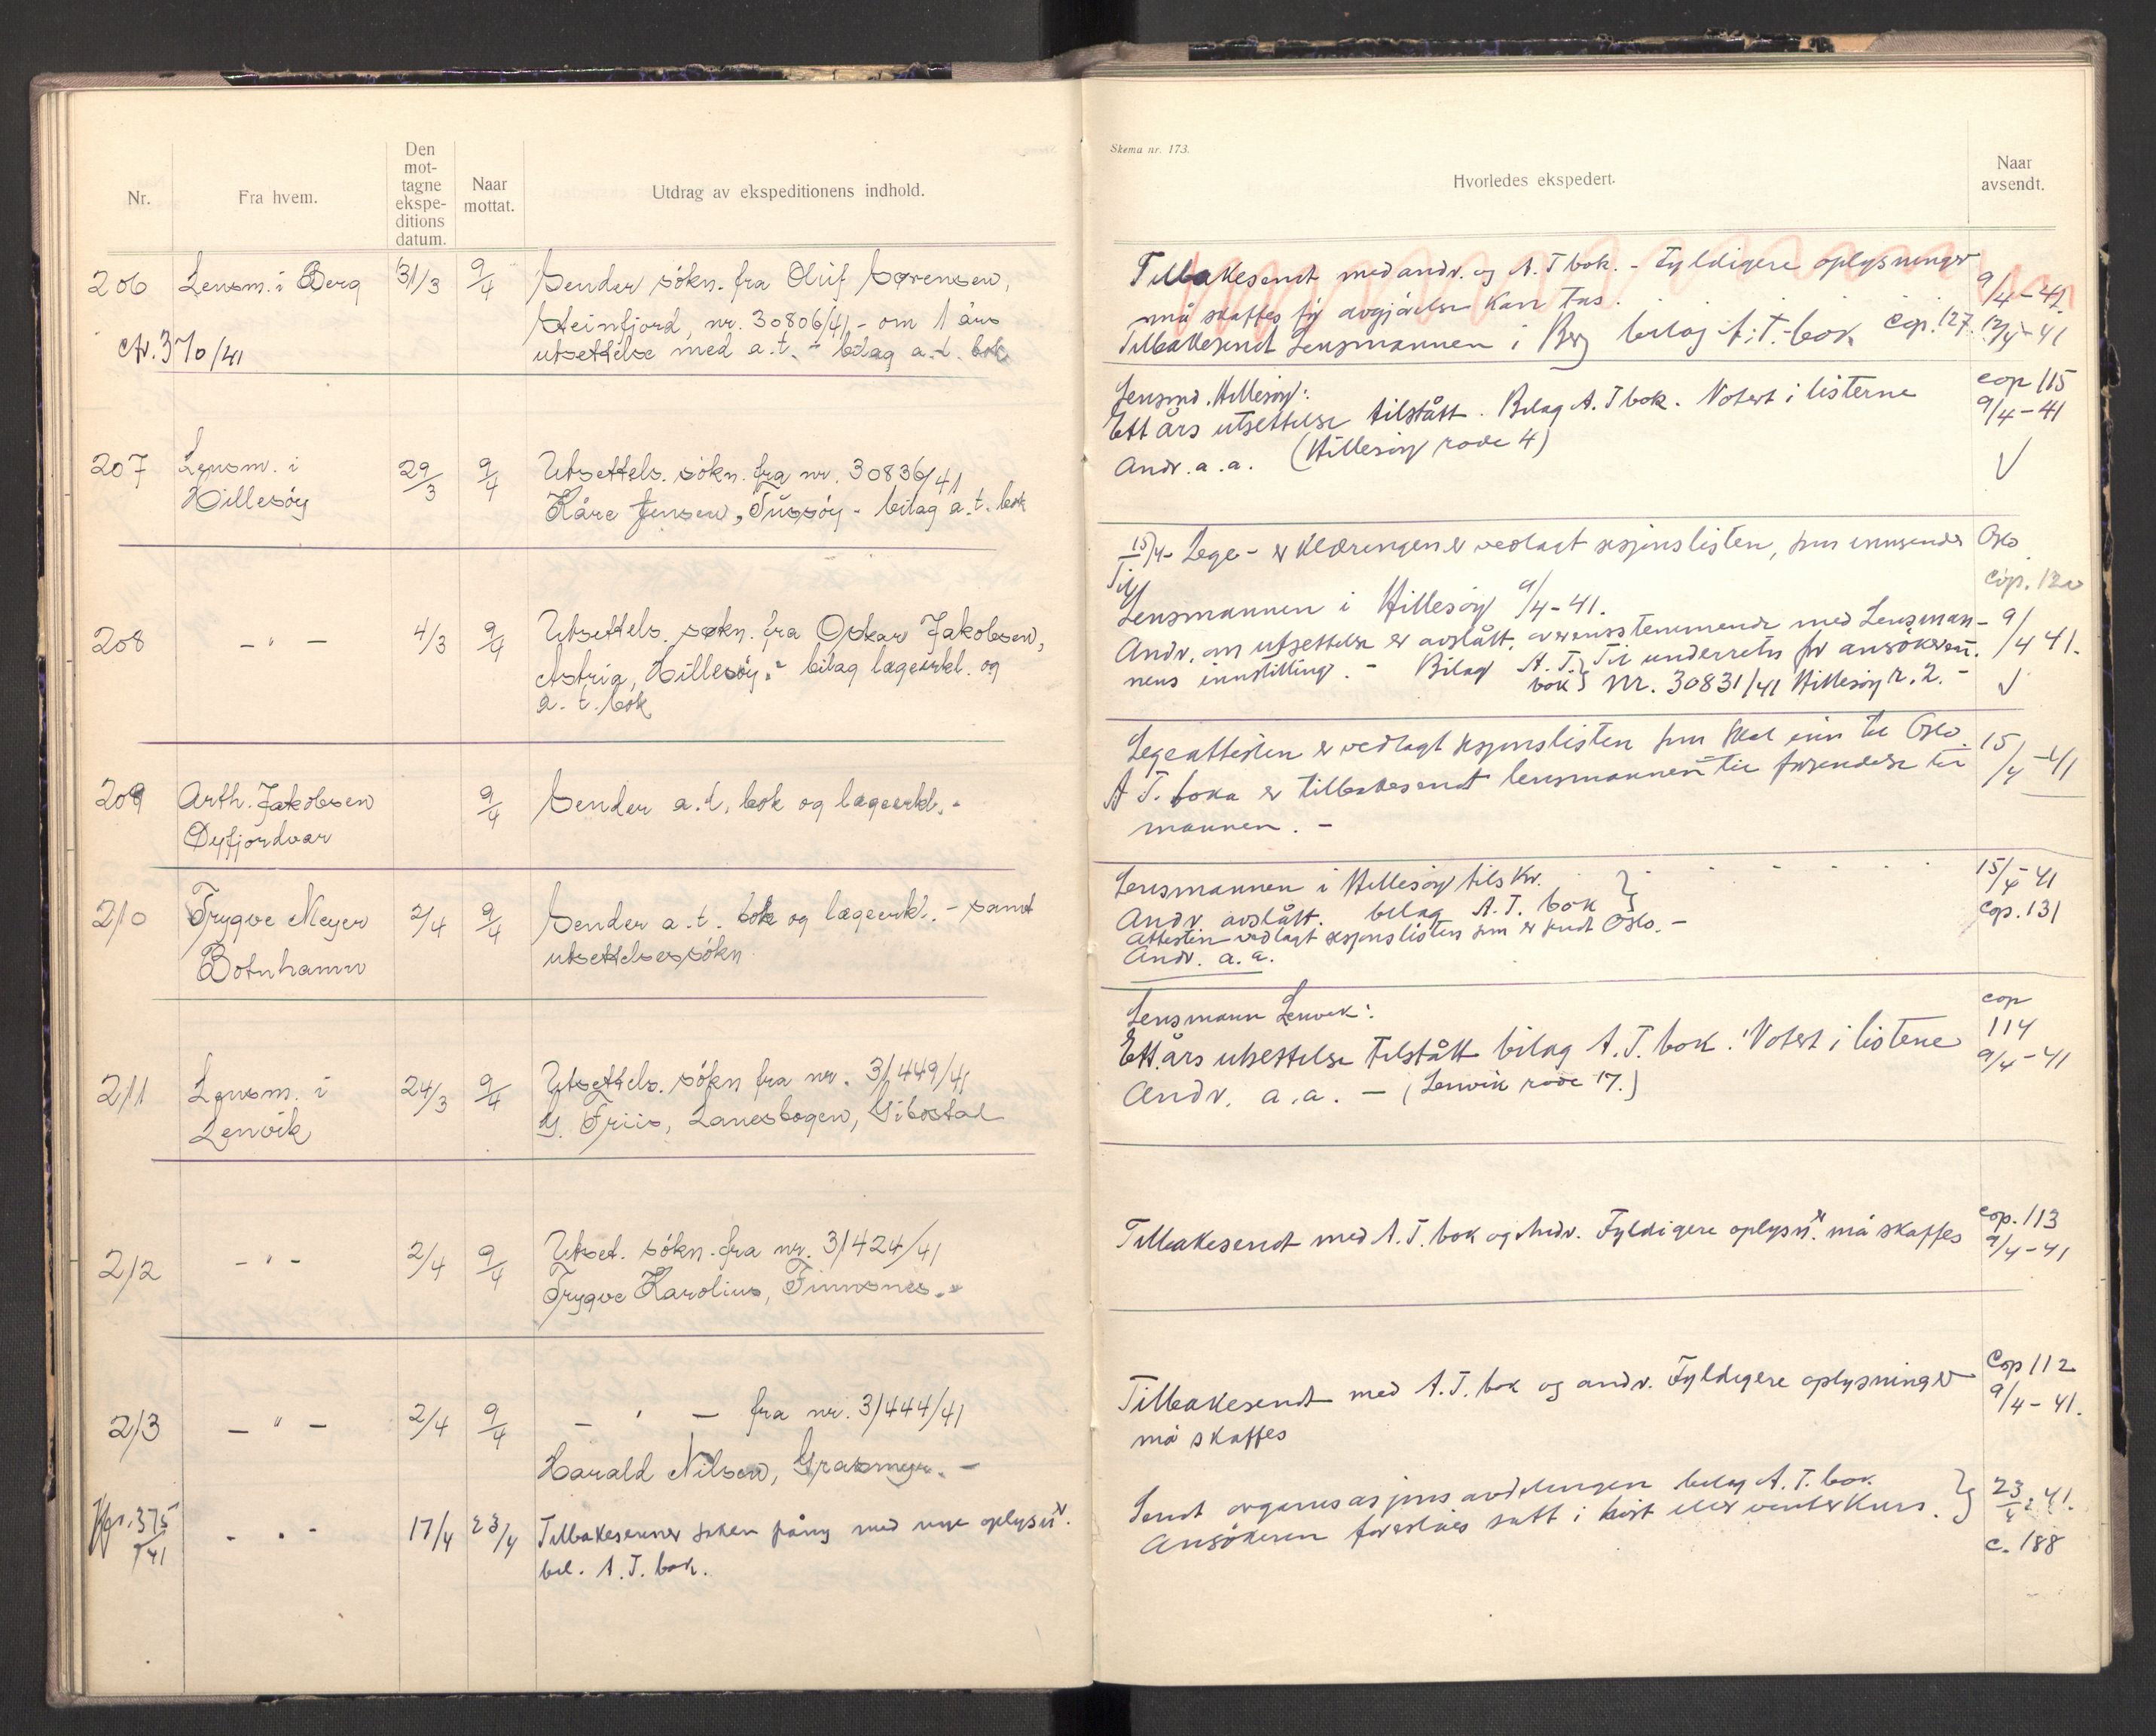 Nr.
Fra hvem.
Den
mot-
tagne
ekspe-
ditions
datum.
Naar
mottat.
Utdrag av ekspeditionens indhold.
206 Lensm. i Berg 31/3 9/4 Sender søkn. fra Oluf Sørensen,
Steinfjord, nr. 30806/41,- om 1 års
370/41 utsettelse med a.t. - bilag a.t. bok
207 Lensm. i 29/3 9/4 Utsettels. søkn. fra nr. 30836/41
Hillesöy Kåre Jensen, Tussöy - bilag a.t. bok
208 - " - 4/3 9/4 Utsettels. søkn. fra Oskar Jakobsen,
Astrig, Hillesöy.- bilag lægeerkl. og
a.t. bok
209 Arth. Jakobsen 9/4 Sender a.t. bok og lægeerkl. -
Öyfjordvær
210 Trygve Meyer 2/4 9/4 Sender a.t. bok og lægeerkl. - samt
Botnhamn utsettelsessökn
211 Lensm. i 24/3 9/4 Utsettels. sökn fra nr. 31449/41
Lenvik Friis, Lanesbogen, Gibostad
212 - " - 2/4 9/4 Utset. sökn. fra nr. 31424/41
Trygve Karolius, Finnsnes. -
213 - " - 2/4 9/4 - " - fra nr. 31444/41
Harald Nilsen, Grasmyr. -
375/41 - " - 17/4 23/4 Tilbakesender saken påny med nye oplysn.
bil. A.T. bok.
Skema nr. 173.
Hvorledes ekspedert.
Naar
avsendt.
Tilbakesendt med andr. og A.T bok. - Fyldigere oplysninger 9/4-41
må skaffes før avgjörelse kan tas.
Tilbakesendt Lensmannen i Berg bilag A.T.-bok Cop. 127. 12/4-41
Lensmd. Hillesöy: cop 115
Ett års utsettelse tilstått. Bilag A.T bok. Notert i listerne 9/4-41
Andr. a.a. (Hillesöy rode 4)
15/4- Lege-erklæringen er vedlagt sesjonslisten, som innsendes Oslo
Til cop. 120
Lensmannen i Hillesöy 9/4-41.
Andr. om utsettelse er avslått, overensstemmende med Lensman- 9/4 41.
nens innstilling. - Bilag A.T. bok } Til underretn for ansökeren.
Nr. 30831/41 Hillesöy r. 2. -
Legeattesten er vedlagt sesjonslisten som skal inn til Oslo. 15/4-41
A.T. boka er tilbakesendt lensmannen til forsendelse til
mannen. -
Lensmannen i Hillesöy tilskr. 15/4-41
Andr. avslått. bilag A.T. bok } cop. 131
Attesten vedlagt sesjonslisten som er sendt Oslo. -
Andr. a.a.
Lensmann Lenvik: cop
114
Ett års utsettelse tilstått bilag A.T. bok. Notert i listene 9/4-41
Andr. a.a. - (Lenvik rode 17.)
Tilbakesendt med A.T. bok og Andr. Fyldigere oplysn.er må skaffes cop. 113
9/4-41
Tilbakesendt med A.T. bok og andr. Fyldigere oplysninger Cop 112
må skaffes 9/4-41.
Sendt organisasjons avdelingen bilag A.T. bok } 23/4-41.
Ansökeren foreslåes satt i höst eller vinterkurs. c. 188